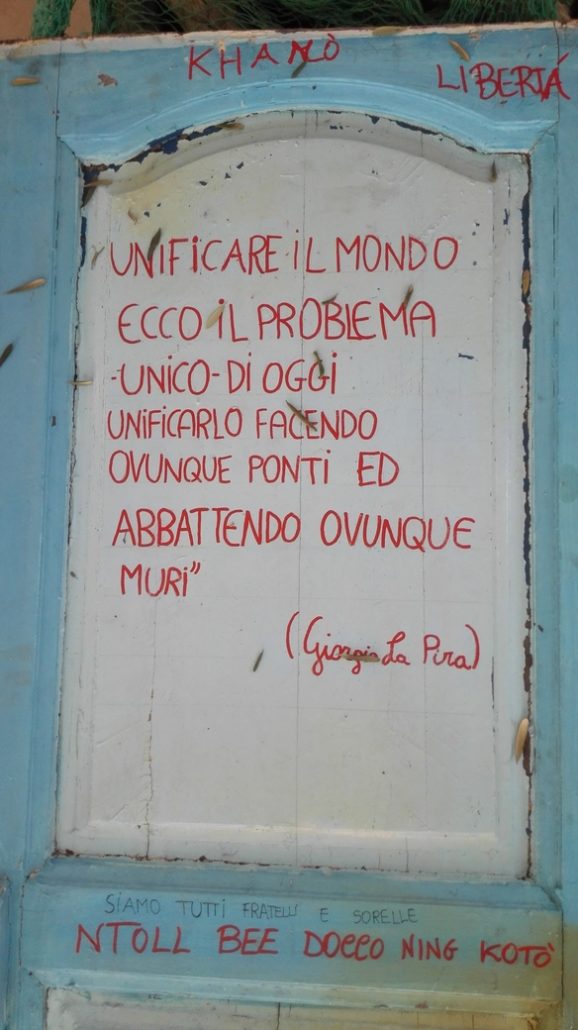 KHANÒ
LIBERTÁ
UNIFICARE IL MONDO
ECCO IL PROBLEMA
-UNICO- DI OGGI
UNIFICARLO FACENDO
OVUNQUE PONTI ED
ABBATTENDO OVUNQUE
MURI"
(Giorgio La Pira)
SIAMO TUTTI FRATELLI E SORELLE
NTOLL BEE DOCCO NING KOTÒ